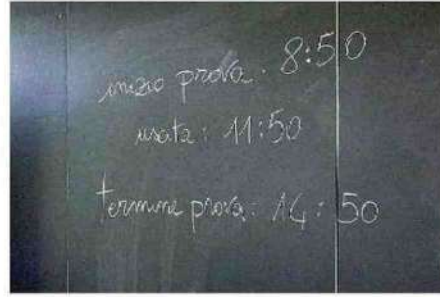 inizio prova: 8:50
usata: 11:50
termine prova: 14:50